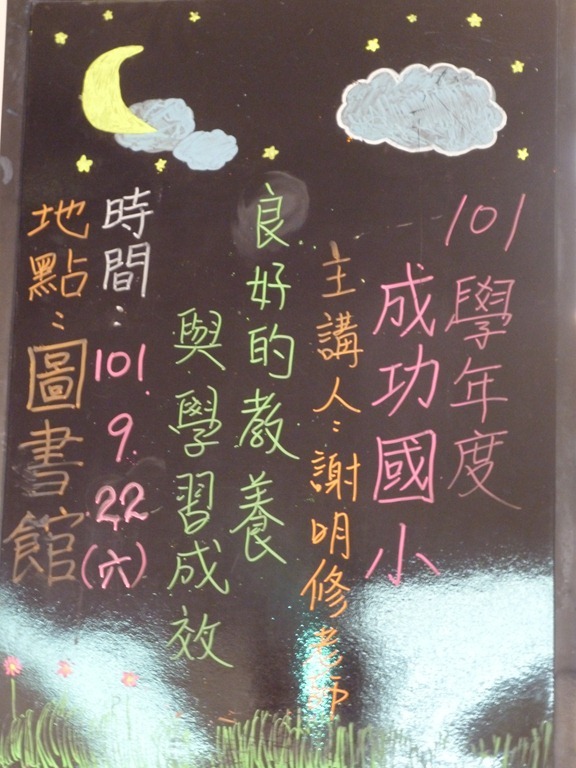 101學年度
成功國小
主講人:謝明修老師
良好的教養
與學習成效
時間:101.9.22(六)
地點:圖書館